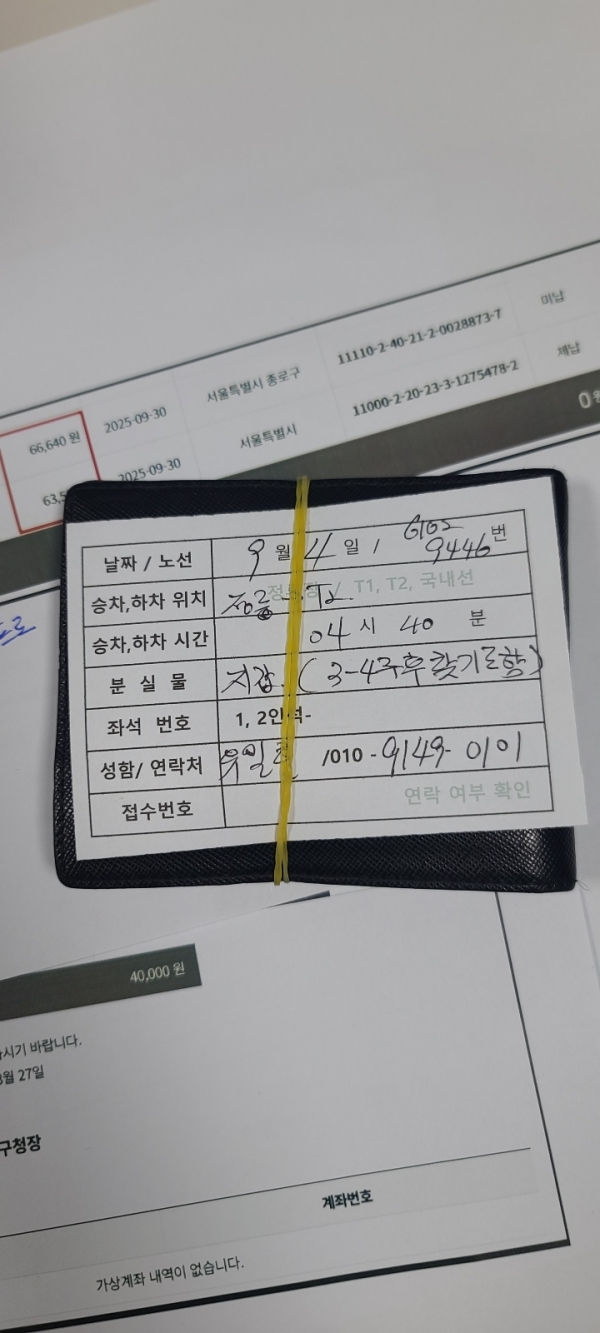 66,640 원 2025-09-30 서울특별시 종로구 11110-2-40-21-2-0028873-7 미납
63,5 2025-09-30 서울특별시 11000-2-20-23-3-1275478-2 체납
0원
날짜 / 노선 9월 4일 / 6102 9446번
승차,하차 위치 정릉 - T2. / T1, T2, 국내선
승차,하차 시간 04시 40 분
분 실 물 지갑. (3-4주후 찾기로함)
좌석 번호 1, 2인석-
성함/ 연락처 유일 /010 - 9149- 0101
접수번호 연락 여부 확인
40,000 원
시기 바랍니다.
월 27일
구청장
계좌번호
가상계좌 내역이 없습니다.